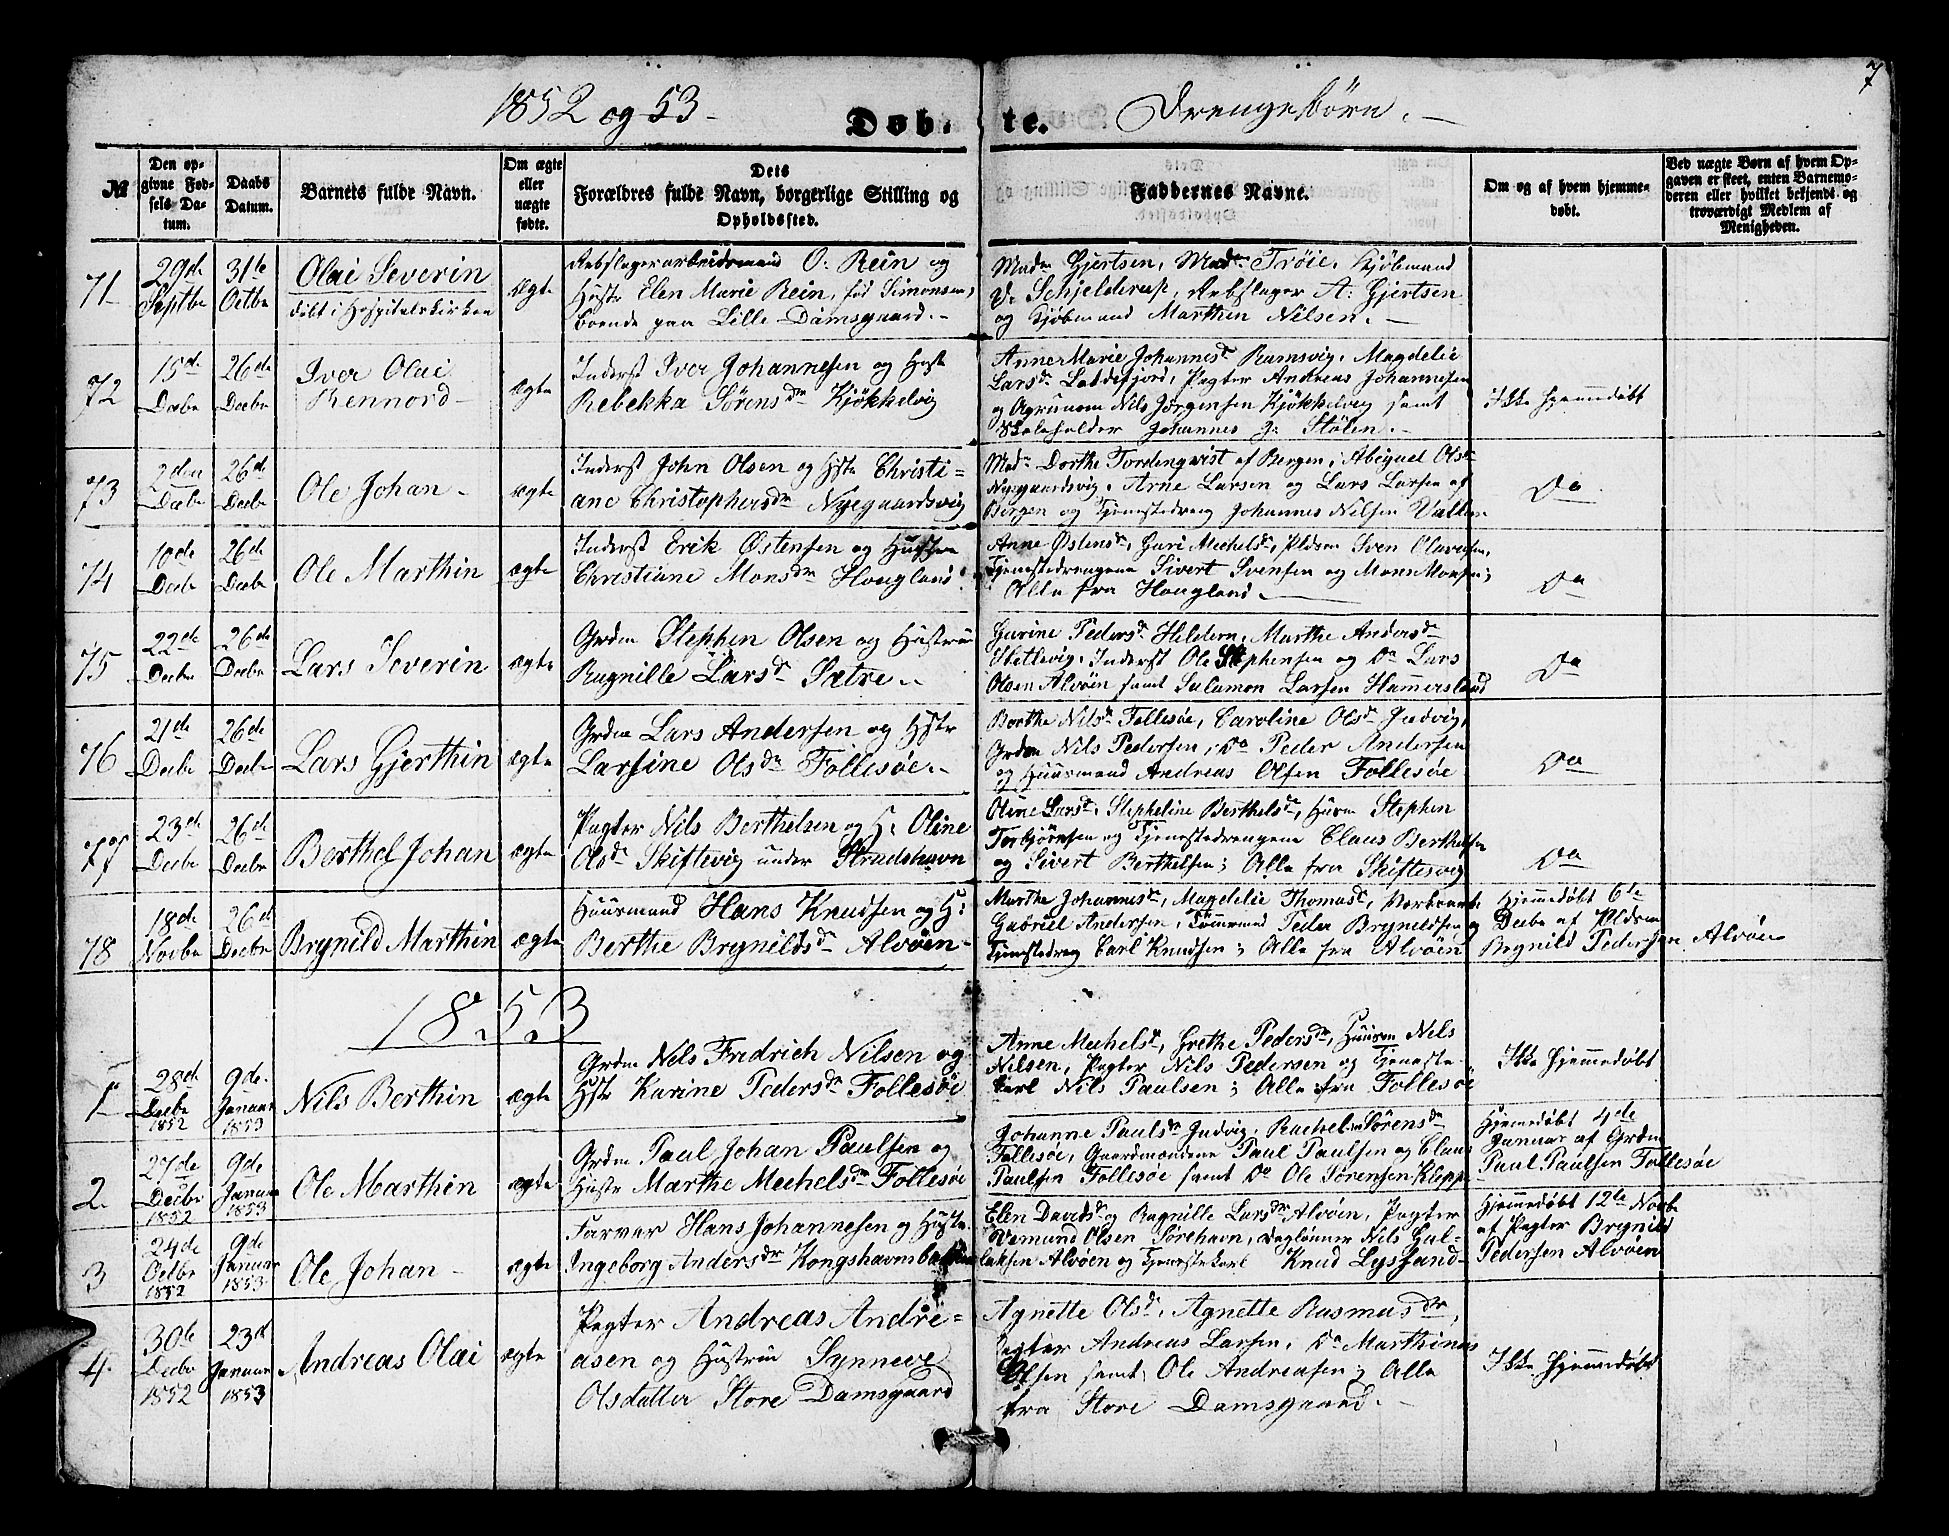 7
1852 og 53-
Døb- te.
Drengebørn.
№
Den opgivne Fødsels Datum.
Daabs Datum.
Barnets fulde Navn.
Om ægte eller uægte fødte.
Dets Forældres fulde Navn, borgerlige Stilling og Opholdssted.
Faddernes Navne.
Om og af hvem hjemmedøbt.
Ved uægte Børn af hvem Opgaven er skeet, enten Barnemoderen eller hvilket bekjendt og troværdigt Medlem af Menigheden.
71
29de Septbr
31te Octbr
Olai Severin
døbt i Hospitalskirken
ægte
Rebslagerarbeidsmand O. Rein og
Hustr Elen Marie Rein, fød Simonsen,
boende paa Lille Damsgaard.-
Madm Gjertsen, Madm Trøie, Kjøbmand
D. Schjelderup, Rebslager A: Gjertsen
og Kjøbmand Marthin Nilsen.-
72
15de Decbr
26de Decbr
Iver Olai
Rennord-
ægte
Inderst Iver Johannesen og Hust
Rebekka Sørensdr Kjøkkelvig
Anne Marie Johannesdr Ramsvig, Magdelie
Larsdr Laddefjord, Pagter Andreas Johannesen
og Nils Jørgensen Kjøkkelvig samt
Skoleholder Johannes J: Stølen.-
Ikke hjemmedøbt
73
2den Decbr
26de Decbr
Ole Johan-
ægte
Inderst John Olsen og Hstr Christi=
ane Christophersdr Nygaardsvig
Madm Dorthe Tordenqvist af Bergen, Abiguel Olsdr
Nygaardsvig, Arne Larsen og Lars Larsen af
Bergen og Tjenestedreng Johannes Nilsen Vallen
Do
74
10de Decbr
26de Decbr
Ole Marthin
ægte
Inderst Erik Østensen og Hustru
Christiane Monsdr Hougland
Anne Østensdr, Guri Mechelsdr, Pldsm Sven Olavesen,
Tjenestedrengene Sivert Svensen og Mons Monsen;
Alle fra Hougland.-
Do
75
22de Decbr
26de Decbr
Lars Severin
ægte
Grdm Stephen Olsen og Hustru
Ragnille Larsdr Sætre.-
Gurine Pedersdr Heldern, Marthe Andersdr
Skiftevig, Inderst Ole Stephensen og Do Lars
Olsen Alvøen samt Salamon Larsen Hammersland
Do
76
21de Decbr
26de Decbr
Lars Gjerthin
ægte
Grdm Lars Andersen og Hstr
Larsine Olsdr Follesøe.-
Berthe Nilsdr Follesøe, Caroline Olsdr Judvig,
Grdm Nils Pedersen, Do Peder Andersen
og Huusmand Andreas Olsen Follesøe
Do
77
23de Decbr
26de Decbr
Berthel Johan
ægte
Pagter Nils Berthelsen og H: Oline
Olsdr Skiftevig under Strudshavn
Oline Larsdr, Stepheline Berthelsdr, Huusm Stephen
Torbjørnsen og Tjenestedrengene Claus Berthelsen
og Sivert Berthelsen; Alle fra Skiftesvig
Do
78
18de Novbr
26de Decbr
Brynild Marthin
ægte
Huusmand Hans Knudsen og H:
Berthe Brynildsdr Alvøen-
Marthe Johannesdr, Magdelie Thomasdr,
Gabriel Andersen, Tømmermand Peder Brynildsen og
Tjenestedreng Carl Knudsen; Alle fra Alvøen
Hjemmedøbt 6te
Decbr af Pldsm
Brynild Pedersen Alvøen
1853
1
28de Decbr 1852
9de Januar 1853
Nils Berthin
ægte
Grdm Nils Fredrich Nilsen og
Hstr Karine Pedersdr Follesøe
Anne Mechelsdr, Grethe Pedersdr, Huusm Nils
Nilsen, Pagter Nils Pedersen og Tjeneste-
karl Nils Paulsen; Alle fra Follesøe
Ikke hjemmedøbt
2
27de Decbr 1852
9de Januar 1853
Ole Marthin
ægte
Grdm Paul Johan Paulsen og
Hustr Marthe Mechelsdr Follesøe
Johanne Paulsdr Judvig, Rachel Sørensdr
Follesøe, Gaardmændene Paul Paulsen og Claus
Paulsen Follesøe samt Do Ole Sørensen Klepp
Hjemmedøbt 4de
Januar af Grdm
Paul Paulsen Follesøe
3
24de Octbr 1852
9de Januar 1853
Ole Johan-
ægte
Farver Hans Johannesen og Hustr
Ingeborg Andersdr Kongshavn
Elen Davidsdr og Ragnille Larsdr Alvøen, Pagter
Vemund Olsen Sørehavn, Dagløner Nils Gul-
laksen Alvøen og Tjenestekarl Knud Lyssand-
Hjemmedøbt 12te Novbr
af Pagter Brynild
Pedersen Alvøen
4
30te Decbr 1852
23de Januar 1853
Andreas Olai
ægte
Pagter Andreas Andre=
asen og Hustru Synneve
Olsdatter Store Damsgaard
Agnette Olsdr, Agnette Rasmusdr,
Pagter Andreas Larsen, Do Marthinus
Olsen samt Ole Andreasen; Alle
fra Store Damsgaard.-
Ikke hjemmedøbt